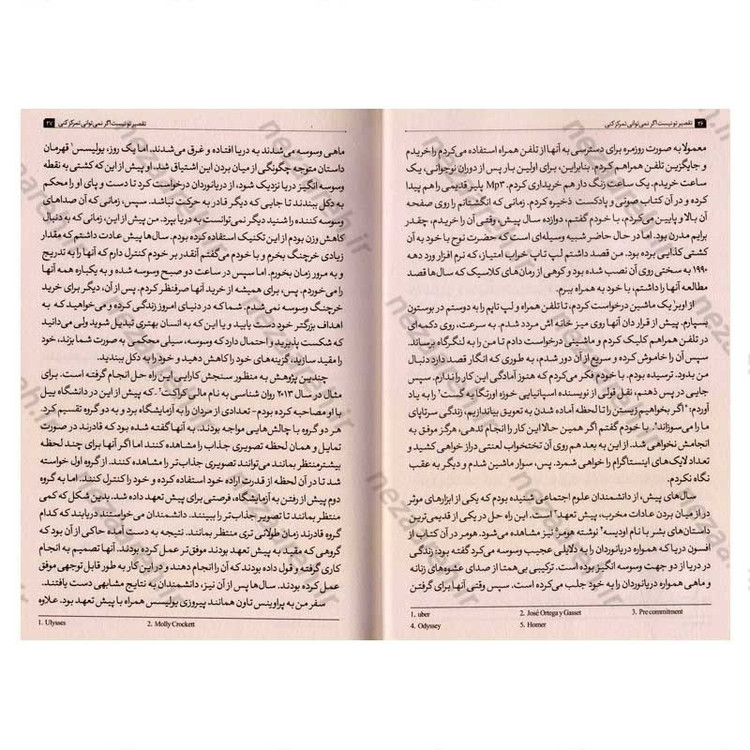 ۳۶ تقصیر تو نیست اگر نمی‌توانی تمرکز کنی
معمولا به صورت روزمره برای دسترسی به آنها از تلفن همراه استفاده می‌کردم را خریدم
و جایگزین تلفن همراهم کردم. بنابراین، برای اولین بار پس از دوران نوجوانی، یک
ساعت خریدم. یک ساعت زنگ دار هم خریداری کردم. Mp۳ پلیر قدیمی را هم پیدا
کرده و در آن کتاب صوتی و پادکست ذخیره کردم. زمانی که انگشتانم را روی صفحه
آن بالا و پایین می‌کردم، با خودم گفتم، دوازده سال پیش، وقتی آن را خریدم، چقدر
برایم مدرن بود. اما در حال حاضر شبیه وسیله‌ای است که حضرت نوح با خود به آن
کشتی کذایی برده بود. من قصد داشتم لپ تاپ خراب امتیاز، که نرم افزار ورد دهه
۱۹۹۰ به سختی روی آن نصب شده بود و کوهی از رمان‌های کلاسیک که سال‌ها قصد
مطالعه آنها را داشتم، با خود به همراه ببرم.
از اوبر¹ یک ماشین درخواست کردم، تا تلفن همراه و لپ تاپم را به دوستم در بوستون
بسپارم. پیش از قرار دان آنها روی میز خانه اش مردد شدم. به سرعت، روی دکمه‌ای
در تلفن همراهم کلیک کردم و ماشینی درخواست دادم تا من را به لنگرگاه برساند.
سپس آن را خاموش کرده و سریع از آن دور شدم، به طوری که انگار قصد دارد دنبال
من بدود. ترسیده بودم. با خودم فکر می‌کردم که هنوز آمادگی این کار را ندارم. سپس
جایی در پس ذهنم، نقل قولی از نویسنده اسپانیایی خوزه اورتگا یه گست² را به یاد
آوردم: "اگر بخواهیم زیستن را تا لحظه آماده شدن به تعویق بیاندازیم، زندگی سرتاپای
ما را می‌سوزاند". با خودم گفتم اگر همین حالا این کار را انجام ندهی، هرگز موفق به
انجامش نخواهی شد. از این به بعد هم روی آن تختخواب لعنتی دراز خواهی کشید و
تعداد لایک‌های اینستاگرام را خواهی شمرد. پس، سوار ماشین شدم و دیگر به عقب
نگاه نکردم.
سال های پیش، از دانشمندان علوم اجتماعی شنیده بودم که یکی از ابزارهای موثر
در از میان بردن عادات مخرب، پیش تعهد³ است. این راه حل در یکی از قدیمی‌ترین
داستان‌های بشر با نام اودیسه⁴ نوشته هومر⁵ نیز مشاهده می‌شود. هومر در آن کتاب از
دریا که همواره دریانوردان را به دلایلی عجیب وسوسه می‌کرد گفته بود؛ زندگی
در دریا از دو جهت وسوسه انگیز بوده است. ترکیبی بی‌همتا از صدای عشوه‌های زنانه
و ماهی همواره دریانوردان را به خود جلب می‌کرده است. سپس وقتی آنها برای گرفتن
1. uber 2. José Ortega y Gasset 3. Pre commitment
4. Odyssey 5. Homer
تقصیر تو نیست اگر نمی‌توانی تمرکز کنی ۳۷
ماهی وسوسه می‌شدند به دریا افتاده و غرق می‌شدند. اما یک روز، یولیسس¹ قهرمان
داستان متوجه چگونگی از میان بردن این اشتیاق شد. او پیش از این که کشتی به نقطه
وسوسه انگیز دریا نزدیک شود، از دریانوردان درخواست کرد تا دست و پای او را محکم
به دکل ببندند تا جایی که دیگر قادر به حرکت نباشد. سپس، زمانی که آن صداهای
وسوسه کننده را شنید دیگر نمی‌توانست به دریا بپرد. من پیش از این، زمانی که به دنبال
کاهش وزن بودم از این تکنیک استفاده کرده بودم. سال‌ها پیش عادت داشتم که مقدار
زیادی خرچنگ بخرم و با خودم می‌گفتم آنقدر بر خودم کنترل دارم که آنها را به تدریج
و به مرور زمان بخورم. اما سپس در ساعت دو صبح وسوسه شده و به یکباره همه آنها
را می‌خوردم. پس، برای همیشه از خرید آنها صرفنظر کردم. پس از آن، دیگر برای خرید
خرچنگ وسوسه نمی‌شدم. شما که در دنیای امروز زندگی کرده و می‌خواهید که به
اهداف بزرگتر خود دست یابید و یا این که به انسان بهتری تبدیل شوید ولی می‌دانید
که شکست پذیرید و احتمال دارد که وسوسه، سیلی محکمی به صورت شما بزند، خود
را مقید سازید، گزینه‌های خود را کاهش دهید و خود را به دکل ببندید.
چندین پژوهش به منظور سنجش کارایی این راه حل انجام گرفته است. برای
مثال در سال ۲۰۱۳ روان شناسی به نام مالی کراکت² که پیش از این در دانشگاه ییل
با او مصاحبه کرده بودم- تعدادی از مردان را به آزمایشگاه برد و به دو گروه تقسیم کرد.
هر دو گروه با چالش‌هایی مواجه بودند. به آنها گفته شده بود که قادرند در صورت
تمایل و همان لحظه تصویری جذاب را مشاهده کنند اما اگر آنها برای چند لحظه
بیشتر منتظر بمانند می‌توانند تصویری جذاب‌تر را مشاهده کنند. از گروه اول خواسته
شد تا در آن لحظه از قدرت اراده خود استفاده کرده و خود را کنترل کنند. اما به گروه
دوم پیش از رفتن به آزمایشگاه، فرصتی برای پیش تعهد داده شد. بدین شکل که کمی
منتظر بمانند تا تصویر جذاب‌تر را ببینند. دانشمندان می‌خواستند دریابند که کدام
گروه قادرند زمان طولانی تری منتظر بمانند. نتیجه به دست آمده حاکی از آن بود که
گروهی که مقید به پیش تعهد بودند موفق‌تر عمل کرده بودند. آنها تصمیم به انجام
کاری گرفته و قول داده بودند که آن را انجام دهند و در این کار به طور قابل توجهی موفق
عمل کرده بودند. سال‌ها پس از آن نیز، دانشمندان به نتایج مشابهی دست یافتند.
سفر من به پراوینس تاون همانند پیروزی یولیسس همراه با پیش تعهد بود. علاوه
1. Ulysses 2. Molly Crockett
nezarah.ir